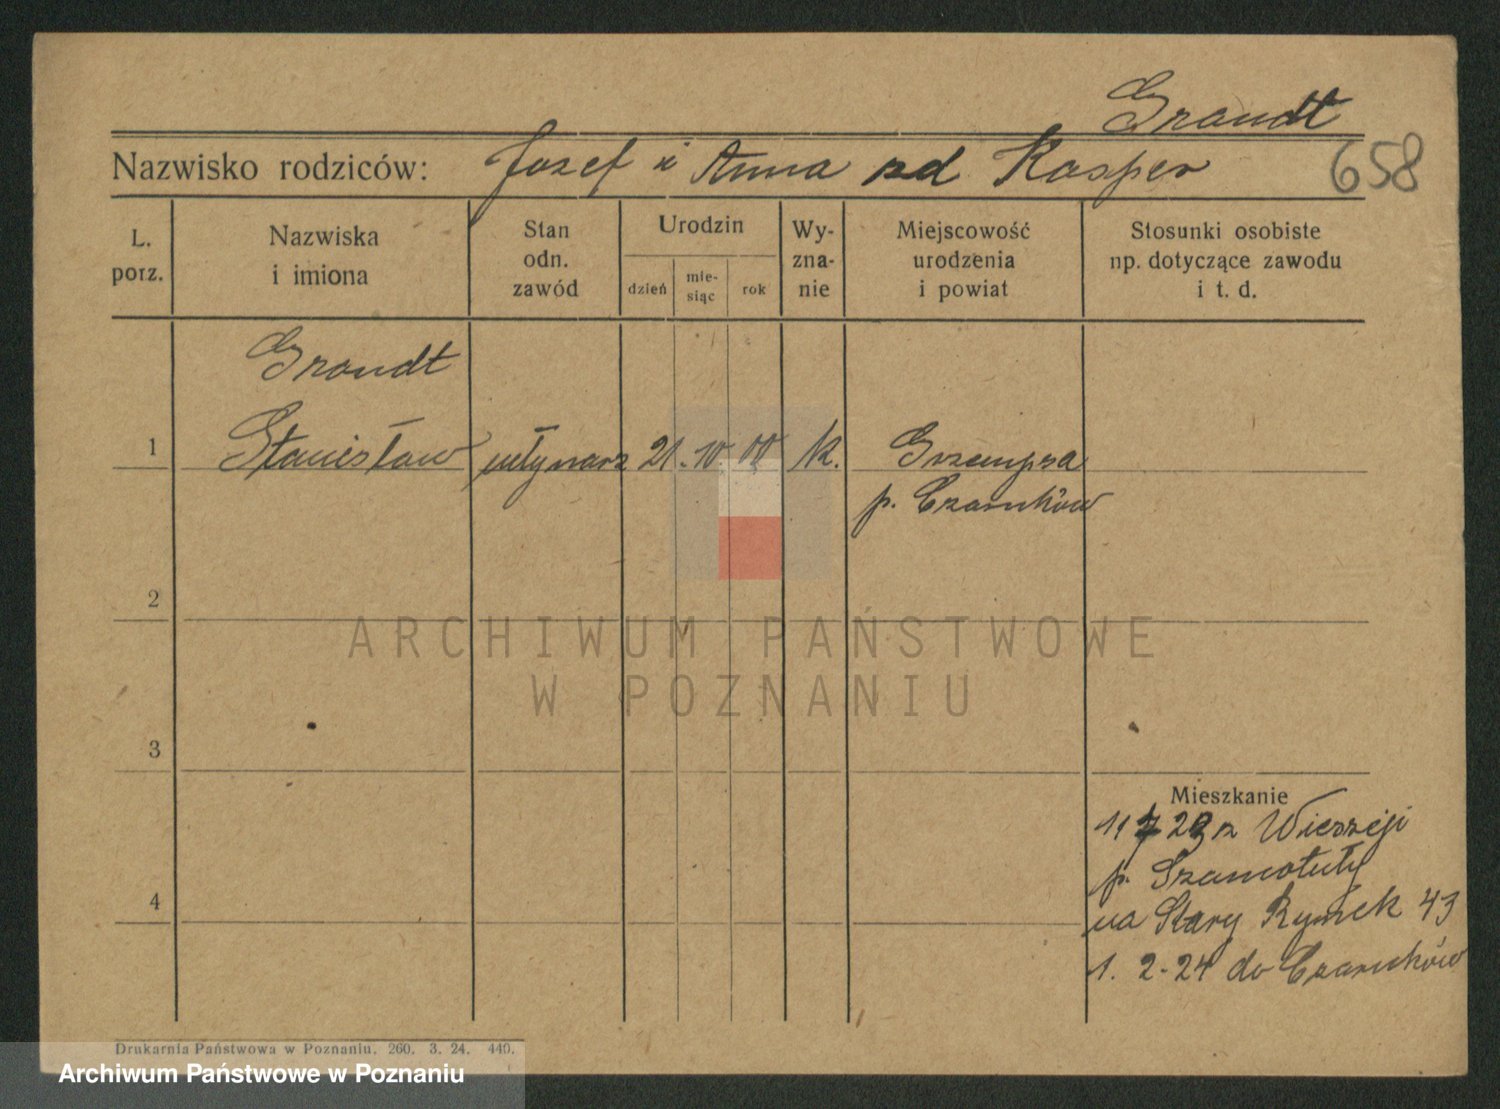 Grandt
Nazwisko rodziców: Jozef i Anna zd Kasper
658
L. porz.
Nazwiska i imiona
Stan odn. zawód
Urodzin
dzień
mie-siąc
rok
Wy-zna-nie
Miejscowość urodzenia i powiat
Stosunki osobiste np. dotyczące zawodu i t. d.
Grandt
1 Stanisław młynarz 21. 10. 00 k. Grzempza
p. Czarnków
2
3
Mieszkanie
11 7 23 z
p. Szamotuły
4
na Stary Rynek 43
1. 2-24 do Czarnków
ARCHIWUM PAŃSTWOWE
W POZNANIU
Drukarnia Państwowa w Poznaniu. 260. 3. 24. 440.
Archiwum Państwowe w Poznaniu